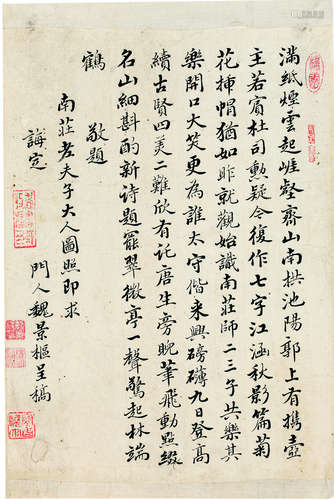 满紙煙雲起崕壑齊山南拱池陽郭上有攜壺
主若賓杜司勲疑今復作七字江涵秋影篇菊
花揷帽猶如昨就觀始識南莊師二三子共樂其
樂開口大笑更為誰太守偕来興磅礴九日登髙
續古賢四美二難欣有託唐生旁睨筆飛動點綴
名山細斟酌新诗題罷翠微亭一聲驚起林端
鶴 敬題
南莊老夫子大人圖照即求
誨定
門人魏景樞呈稿